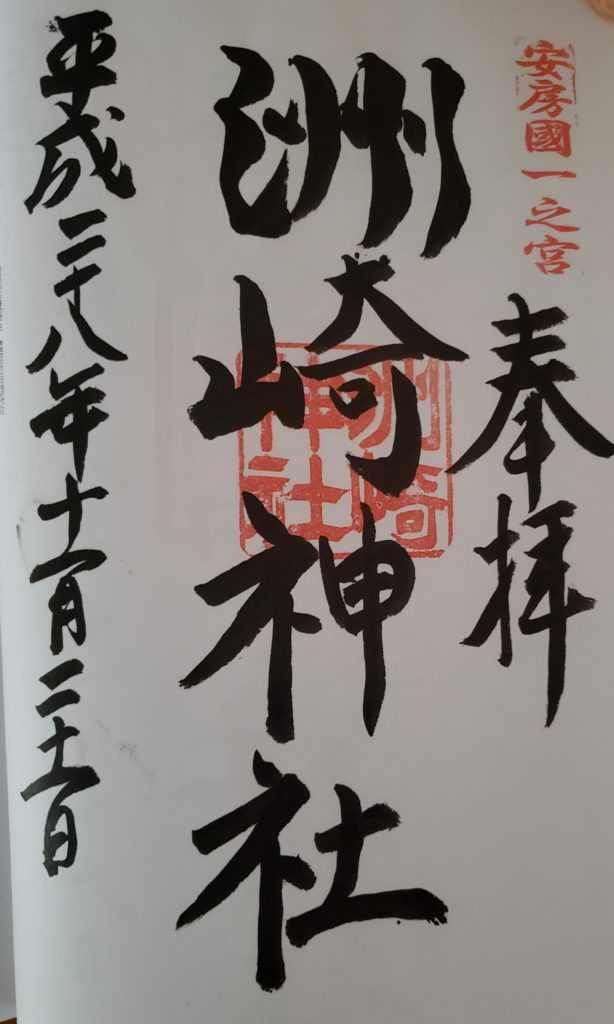 安房國一之宮
奉拝
洲崎神社
洲崎
神社
平成二十八年十一月二十一日